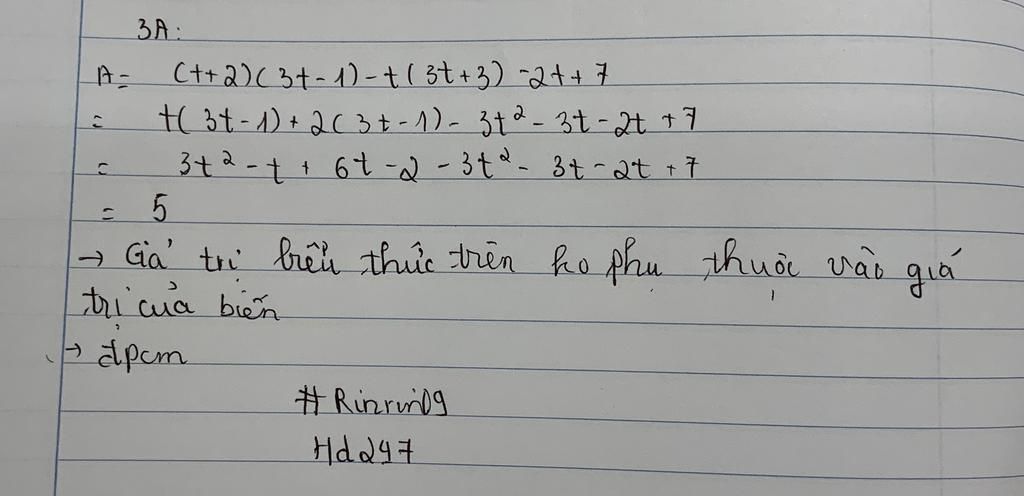 3A:
A = (t+2)(3t-1)-t(3t+3)-2t+7
= t(3t-1)+2(3t-1)-3t²-3t-2t+7
= 3t²-t+6t-2-3t²-3t-2t+7
= 5
→ Giá trị biểu thức trên ko phụ thuộc vào giá
trị của biến
→ đpcm
#Rinrin09
Hd247